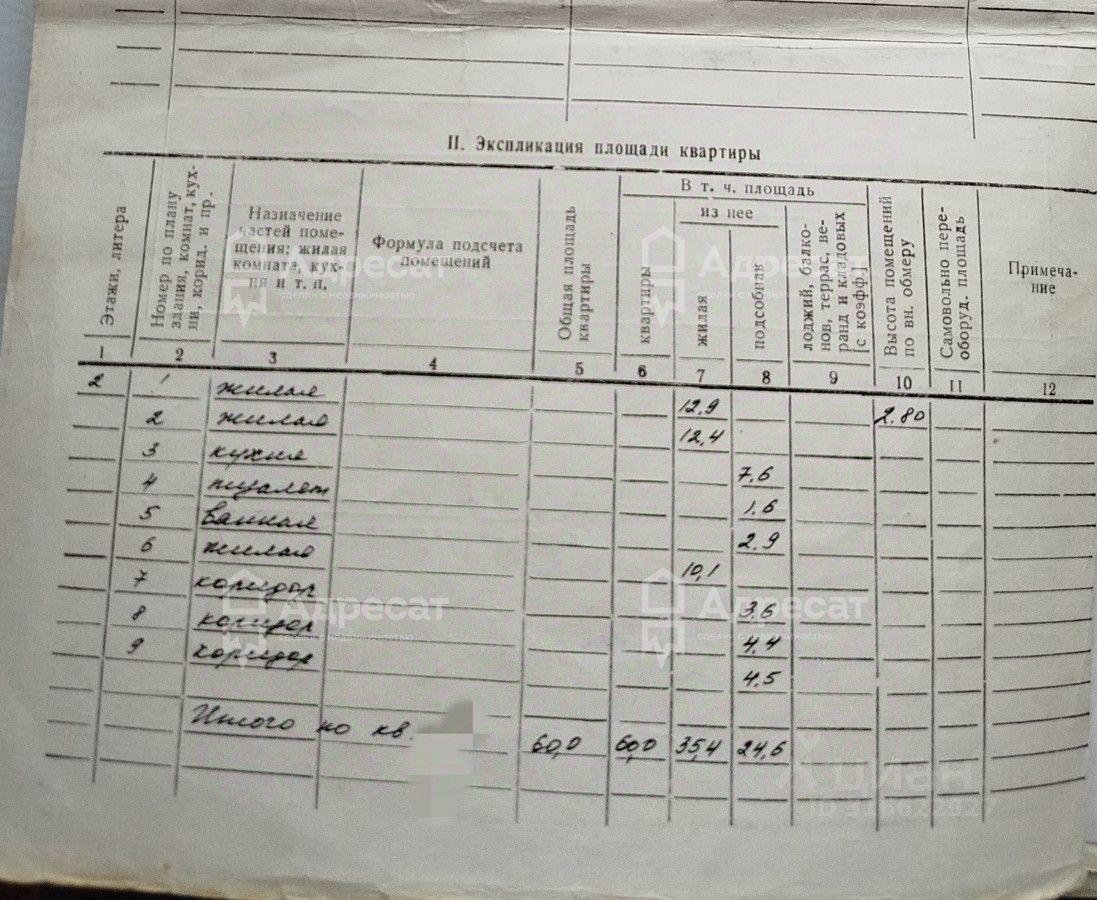 II. Экспликация площади квартиры
Этажи, литера
Номер по плану здания, комнат, кухни, корид. и пр.
Назначение
частей поме-
щения: жилая
комната, кух-
ня и т. п.
Формула подсчета
помещений
Общая площадь
квартиры
В т. ч. площадь
из нее
квартиры
жилая
подсобная
лоджий, балко-
нов, террас, ве-
ранд и кладовых
[с коэфф.]
Высота помещений
по вн. обмеру
Самовольно пере-
оборуд. площадь
Примеча-
ние
1 2 3 4 5 6 7 8 9 10 11 12
2 1 жилая 12,9 2.80
2 жилая 12,4
3 кухня 7,6
4 туалет 1,6
5 ванная 2,9
6 жилая 10,1
7 коридор 3,6
8 коридор 4,4
9 коридор 4,5
Итого по кв. 60,0 60,0 35,4 24,6
Адресат
сделки с недвижимостью
Адресат
Адресат
сделки с недвижимостью
Адресат
сделки с недвижимостью
циан